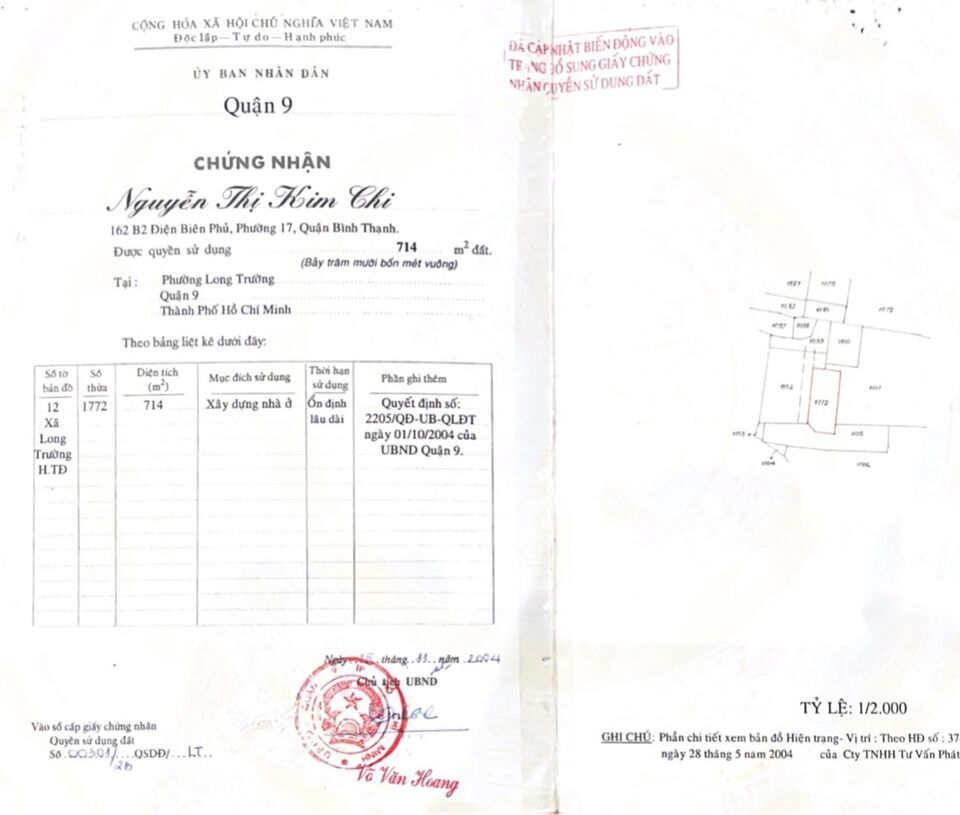 CỘNG HÒA XÃ HỘI CHỦ NGHĨA VIỆT NAM
Độc lập — Tự do — Hạnh phúc
ỦY BAN NHÂN DÂN
Quận 9
CHỨNG NHẬN
Nguyễn Thị Kim Chi
162 B2 Điện Biên Phủ, Phường 17, Quận Bình Thạnh.
Được quyền sử dụng 714 m² đất.
(Bảy trăm mười bốn mét vuông)
Tại : Phường Long Trường
Quận 9
Thành Phố Hồ Chí Minh
Theo bảng liệt kê dưới đây:
Số tờ bản đồ
Số thửa
Diện tích (m²)
Mục đích sử dụng
Thời hạn sử dụng
Phần ghi thêm
12 Xã Long Trường H.TĐ
1772
714
Xây dựng nhà ở
Ổn định lâu dài
Quyết định số:
2205/QĐ-UB-QLĐT
ngày 01/10/2004 của
UBND Quận 9.
Ngày 15 tháng 11 năm 2004
Chủ tịch UBND
Võ Văn Hoang
Vào sổ cấp giấy chứng nhận
Quyền sử dụng đất
Số QSDĐ/ LT
ĐÃ CẬP NHẬT BIẾN ĐỘNG VÀO
TRANG BỔ SUNG GIẤY CHỨNG
NHẬN QUYỀN SỬ DỤNG ĐẤT
1772
TỶ LỆ: 1/2.000
GHI CHÚ: Phần chi tiết xem bản đồ Hiện trạng- Vị trí : Theo HĐ số : 37
ngày 28 tháng 5 năm 2004 của Cty TNHH Tư Vấn Phát